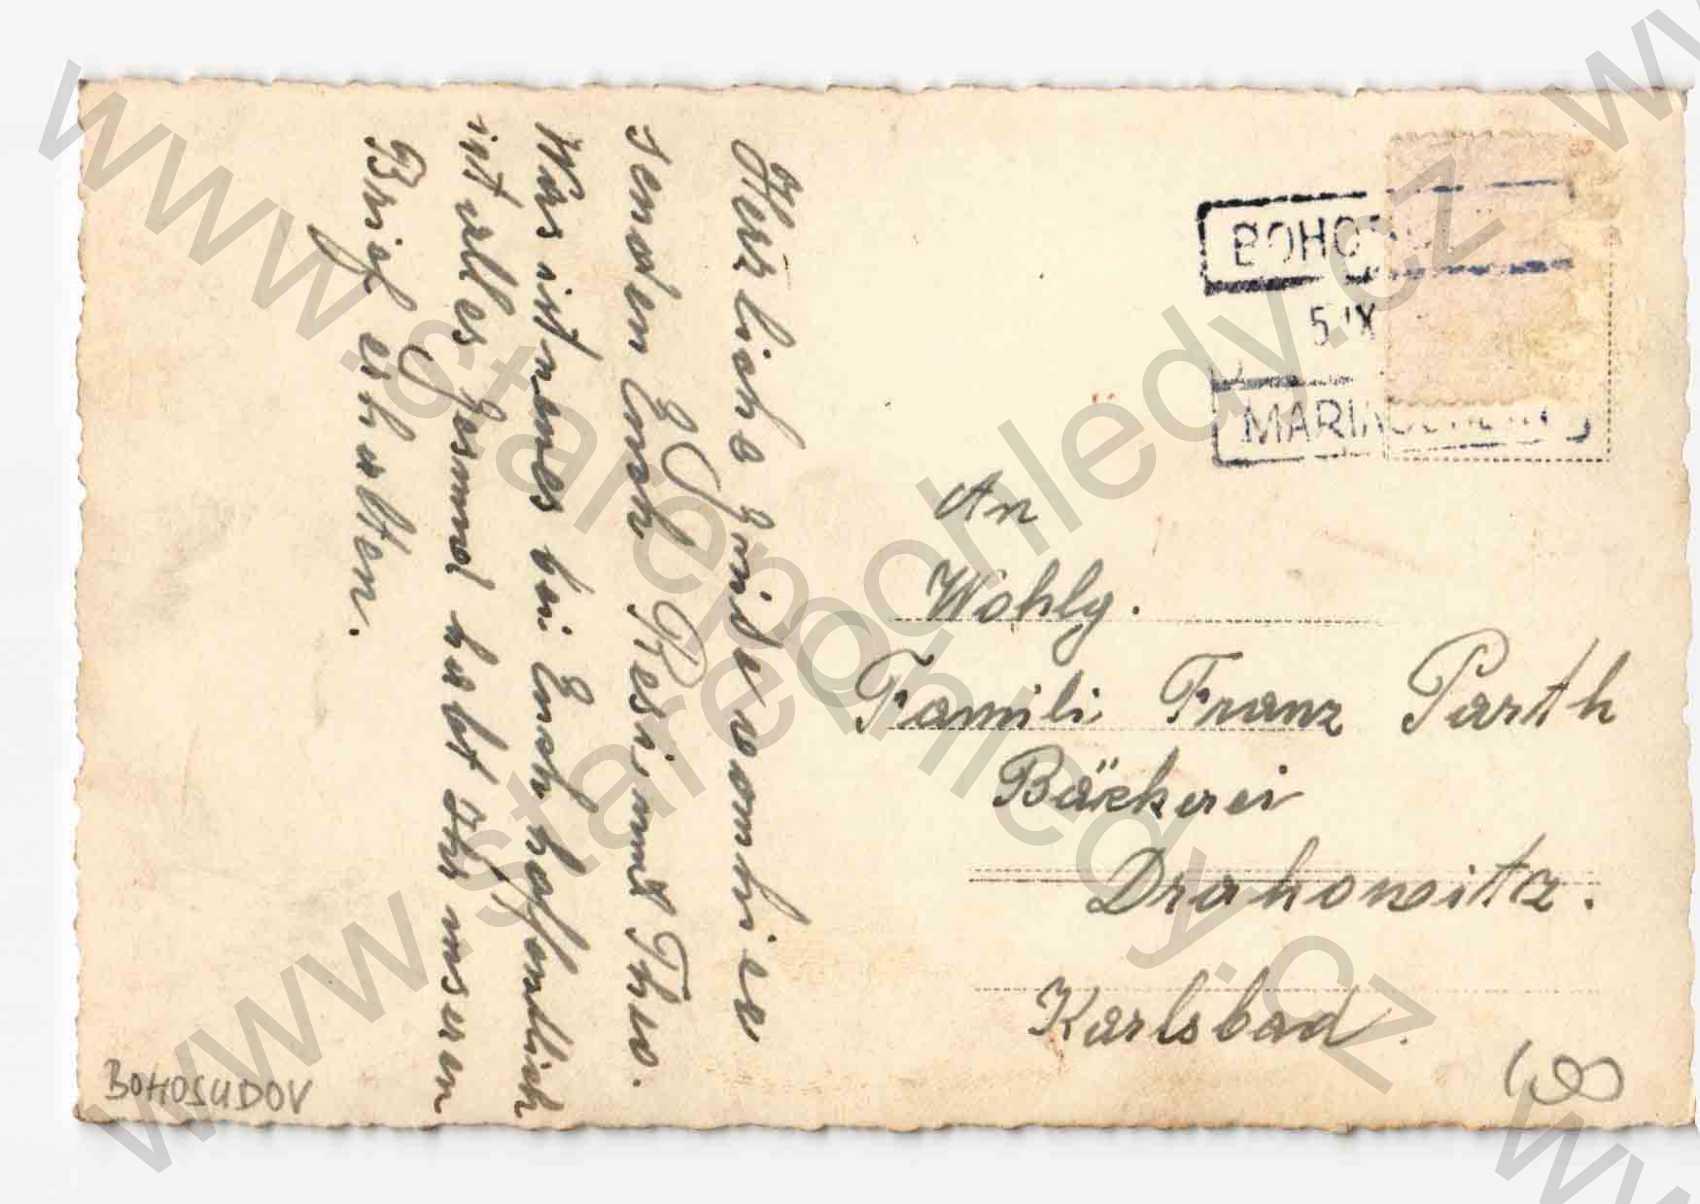 Herzliche Grüße von hier
senden Euch Resi, und Theo.
Was ist neues bei Euch hoffendlich
ist alles Gesund habt Ihr unseren
Brief erhalten.
BOHOS
5 IX
MARIASCHEIN
An
Wohlg.
Famili Franz Parth
Bäckerei
Drahowitz.
Karlsbad.
BOHOSUDOV
www.starepohledy.cz
www.starepohledy.cz